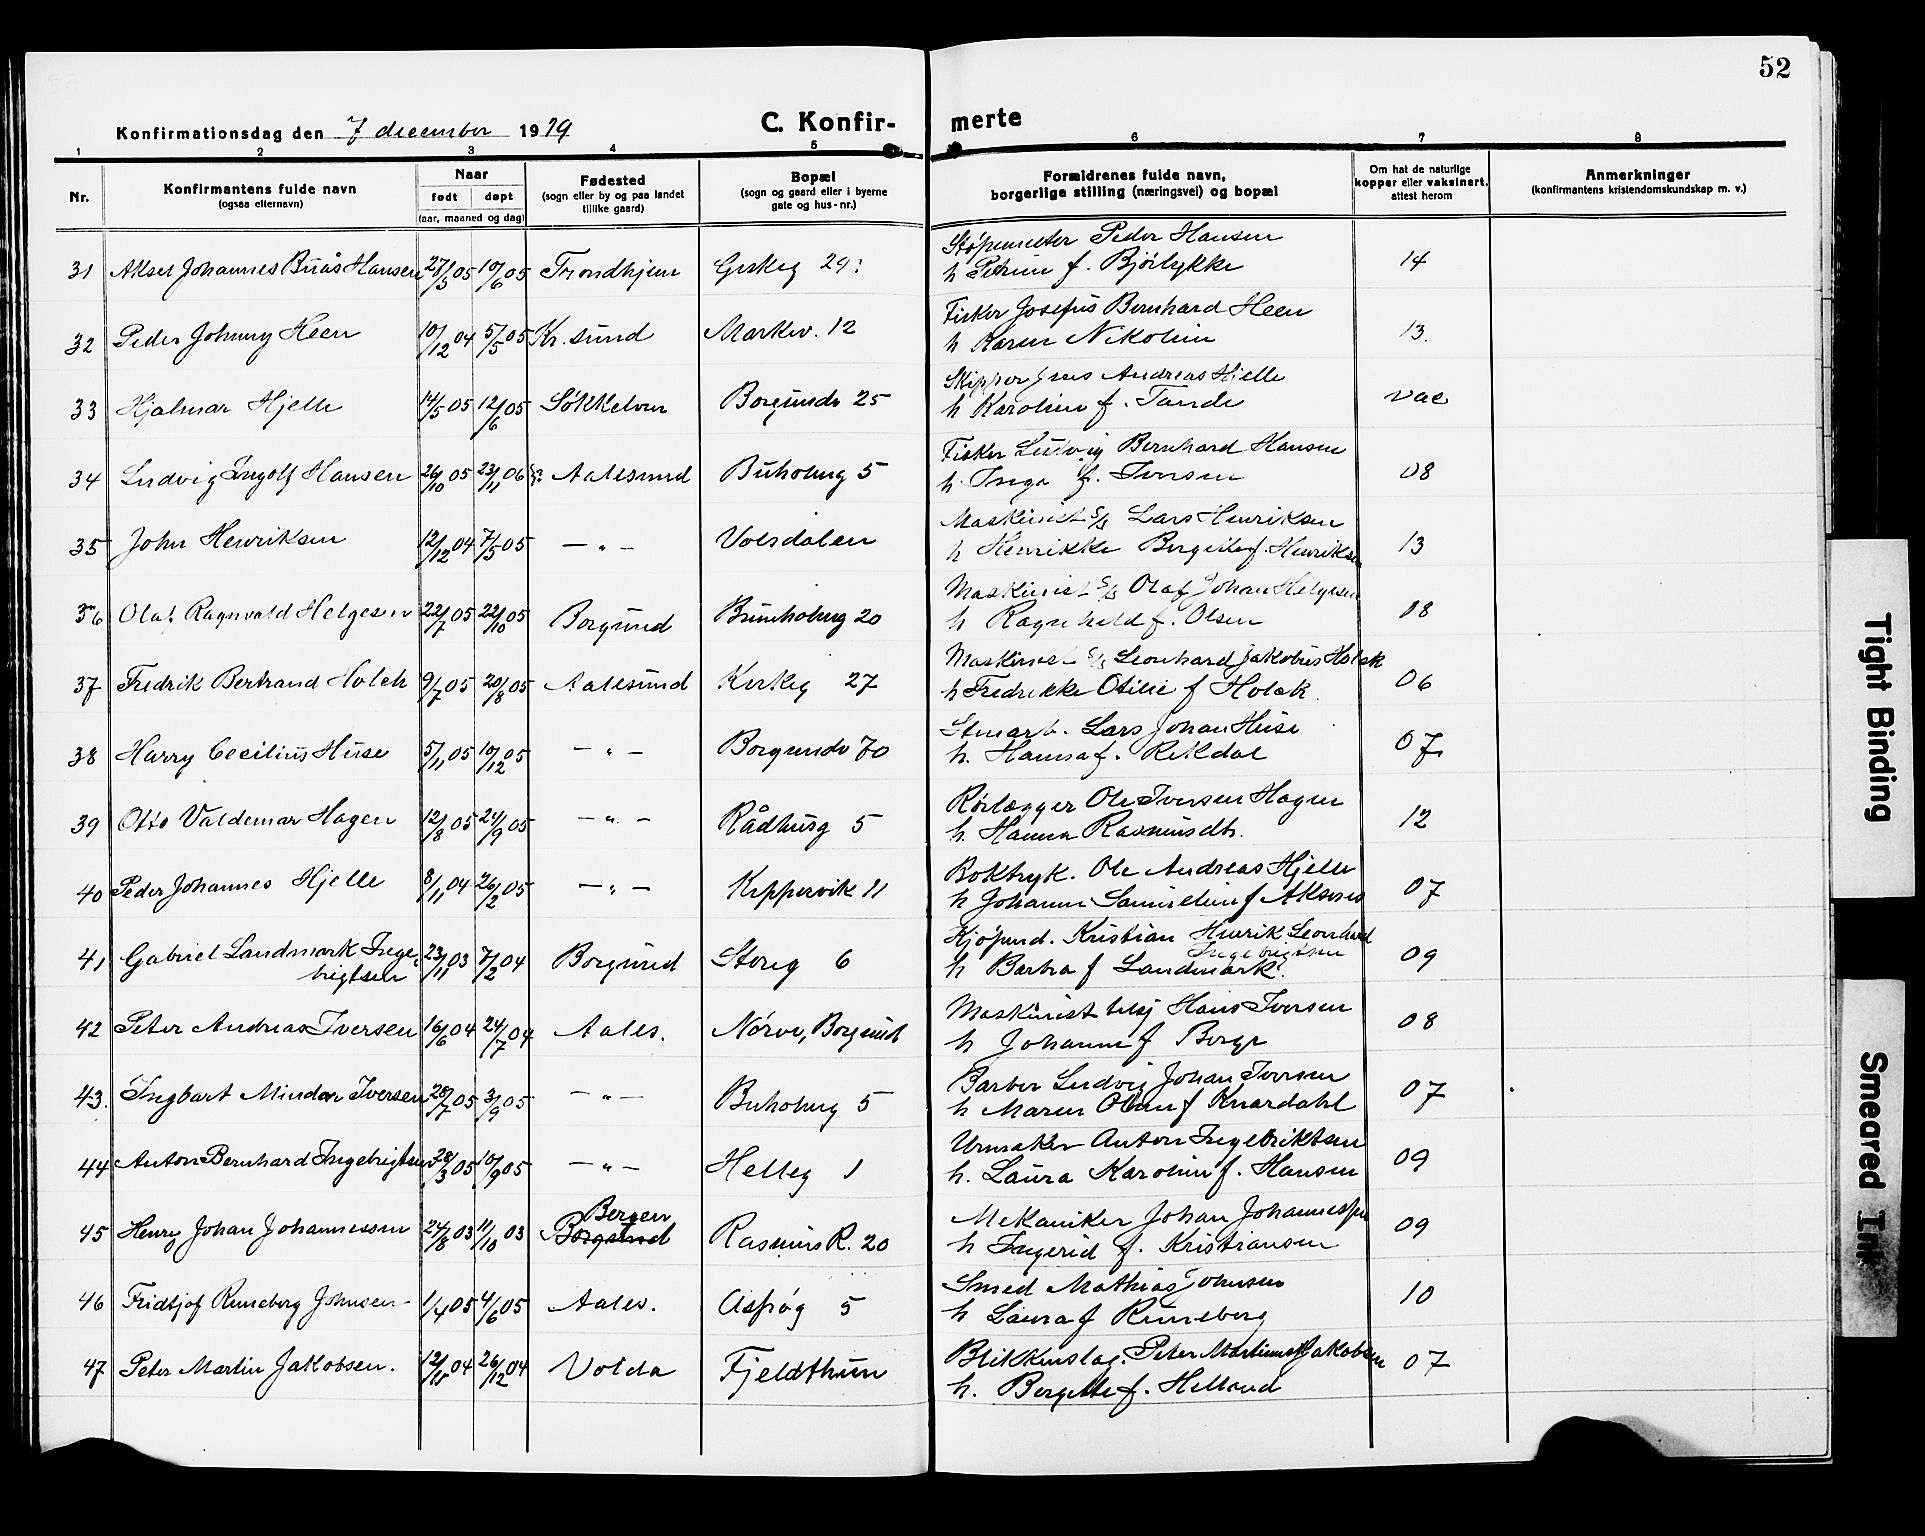 52
Konfirmationsdag den 7 december 1919
C. Konfir-
merte
1 2 3 4 5 6 7 8
Nr.
Konfirmantens fulde navn
(ogsaa efternavn)
Naar
født døpt
(aar, maaned og dag)
Fødested
(sogn eller by og paa landet
tillike gaard)
Bopæl
(sogn og gaard eller i byerne
gate og hus-nr.)
Forældrenes fulde navn,
borgerlige stilling (næringsvei) og bopæl
Om hat de naturlige
kopper eller vaksinert,
attest herom
Anmerkninger
(konfirmantens kristendomskundskap m. v.)
31 Aksel Johannes Buås Hansen 27/3 05 10/6 05 Trondhjem 29: Peder Hansen
h Petrine f. 14
32 Peder Johnny Heen 10/12 04 5/5 05 Kr. sund Markv. 12 Fisker Josefus Bernhard Heen
h Karen Nikoline 13.
33 Hjalmar Hjelle 14/5 05 12/6 05 Søkkelven Borgundv 25 Skipper Jens Andreas Hjelle
h Karoline f. Tande vac
34 Ludvig Ingolf Hansen 26/10 05 23/11 06 Aalesund Buholmg 5 Fisker Ludvig Bernhard Hansen
h. Inga f. Iversen 08
35 John Henriksen 12/12 04 7/5 05 —"— Volsdalen Maskinist S/S Lars Henriksen
h Henrikke Bergitte f. Henriksen 13
36 Olaf Ragnvald Helgesen 22/7 05 22/10 05 Borgund Buholmg 20 Maskinist S/S Olaf Johan Helgesen
h Ragnhild f. Olsen 08
37 Fredrik Bertrand Holck 9/7 05 20/8 05 Aalesund Kirkeg 27 Maskinist S/S Leonhard Jakobus Holck
h Fredrikke Otilie f Holck. 06
38 Harry Cecilius Huse 5/11 05 10/12 05 —"— Borgundv 70 Stenarb. Lars Johan Huse
h. Hanna f. Rekdal 07
39 Otto Valdemar Hagen 12/8 05 24/9 05 —"— Rådhusg 5 Rørlægger Ole Iversen Hagen
h. Hanna Rasmusdtr. 12
40 Peder Johannes Hjelle 8/11 04 26/2 05 —"— Kippervik 11 Boktryk. Ole Andreas Hjelle
h Johanne Samueline f Aksnes 07
41 Gabriel Landmark Inge-
brigtsen 23/11 03 7/2 04 Borgund Storg 6 Kjøpmd. Kristian Henrik Leonhard
Ingebrigtsen
h Barbra f Landmark. 09
42 Peter Andreas Iversen 16/6 04 24/7 04 Aales. Nørve, Borgund Maskinist Hans Iversen
h Johanne f Berge 08
43. Ingbart Mindor Iversen 28/7 05 3/9 05 —"— Buholmg 5 Barber Ludvig Johan Iversen
h Maren Oline f Knardahl 07
44 Anton Bernhard Ingebrigtsen 28/3 05 10/9 05 —"— Helleg 1 Urmaker Anton Ingebriktsen
h. Laura Karoline f. Hansen 09
45 Henry Johan Johannessen 24/8 03 11/10 03 Bergen
Borgund Rasmus R. 20 Mekaniker Johan Johannessen
h Ingerid f. Kristiansen 09
46 Fridtjof Runeberg Johnsen 1/4 05 4/6 05 Aales. Aspøg 5 Smed Mathias Johnsen
h Laura f Runeberg 10
47 Peter Martin Jakobsen. 12/11 04 26/12 04 Volda Fjeldthun Blikkenslag. Peter Martinus Jakobsen
h. Bergitte f. Helland 07
Tight Binding
Smeared Ink